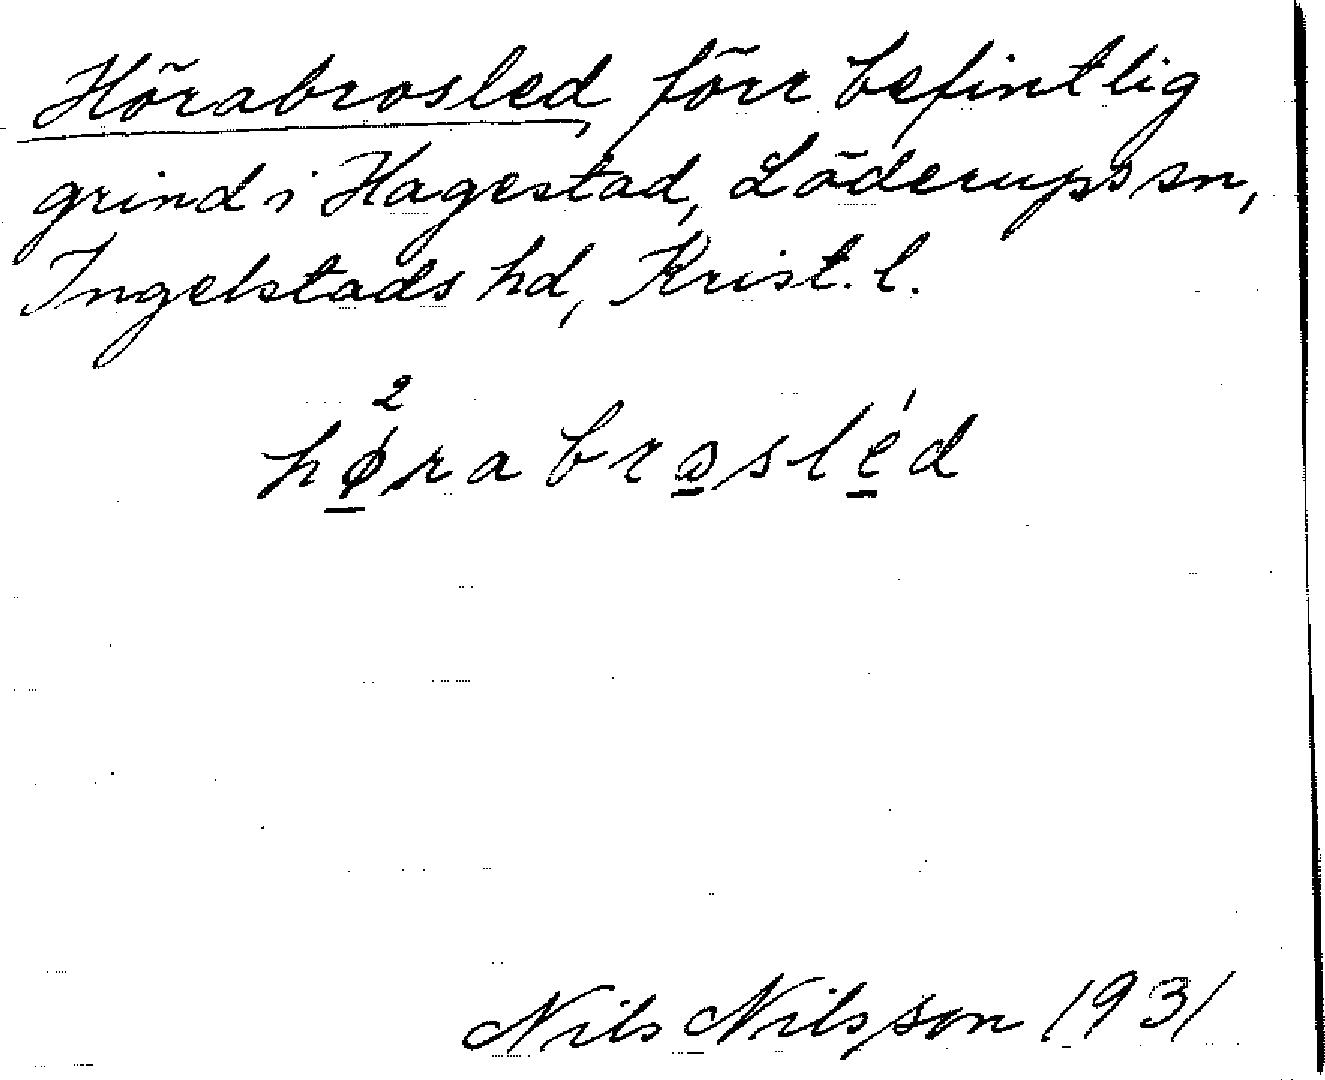 Hörabrosled, förr befintlig
grind i Hagestad, Löderups sn,
Ingelstads hd, Krist. l.
2
hø̲rabro̲slé̲d
Nils Nilsson 1931